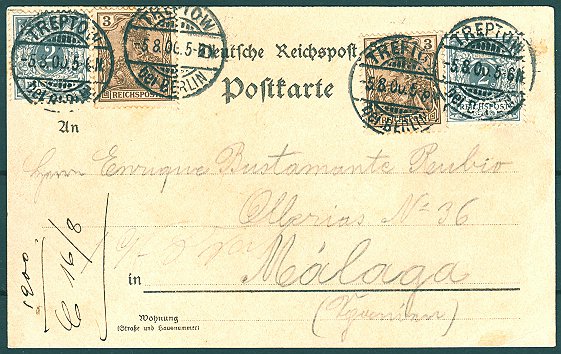 TREPTOW
-5.8.00.5-6N
bei BERLIN
3
REICHSPOST
TREPTOW
-5.8.00.5-6N
bei BERLIN
Deutsche Reichspost
TREPTOW
-5.8.00.5-6N
bei BERLIN
3
TREPTOW
-5.8.00.5-6N
REICHSPOST
Postkarte
An
Herrn Enrique Bustamante Rubio
Ollerias No 36
in Málaga
(Spanien)
Wohnung
(Straße und Hausnummer)
1900.
16/8